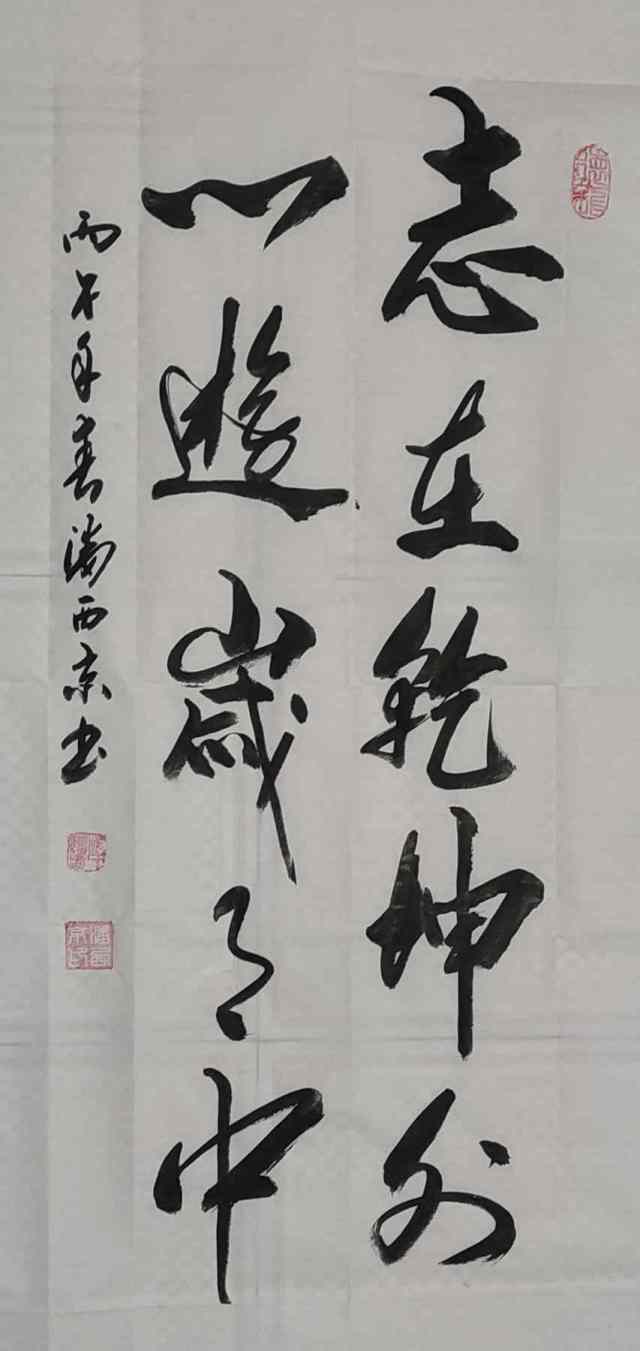 志在乾坤外
心遊歲月中
丙午年春潘西京书